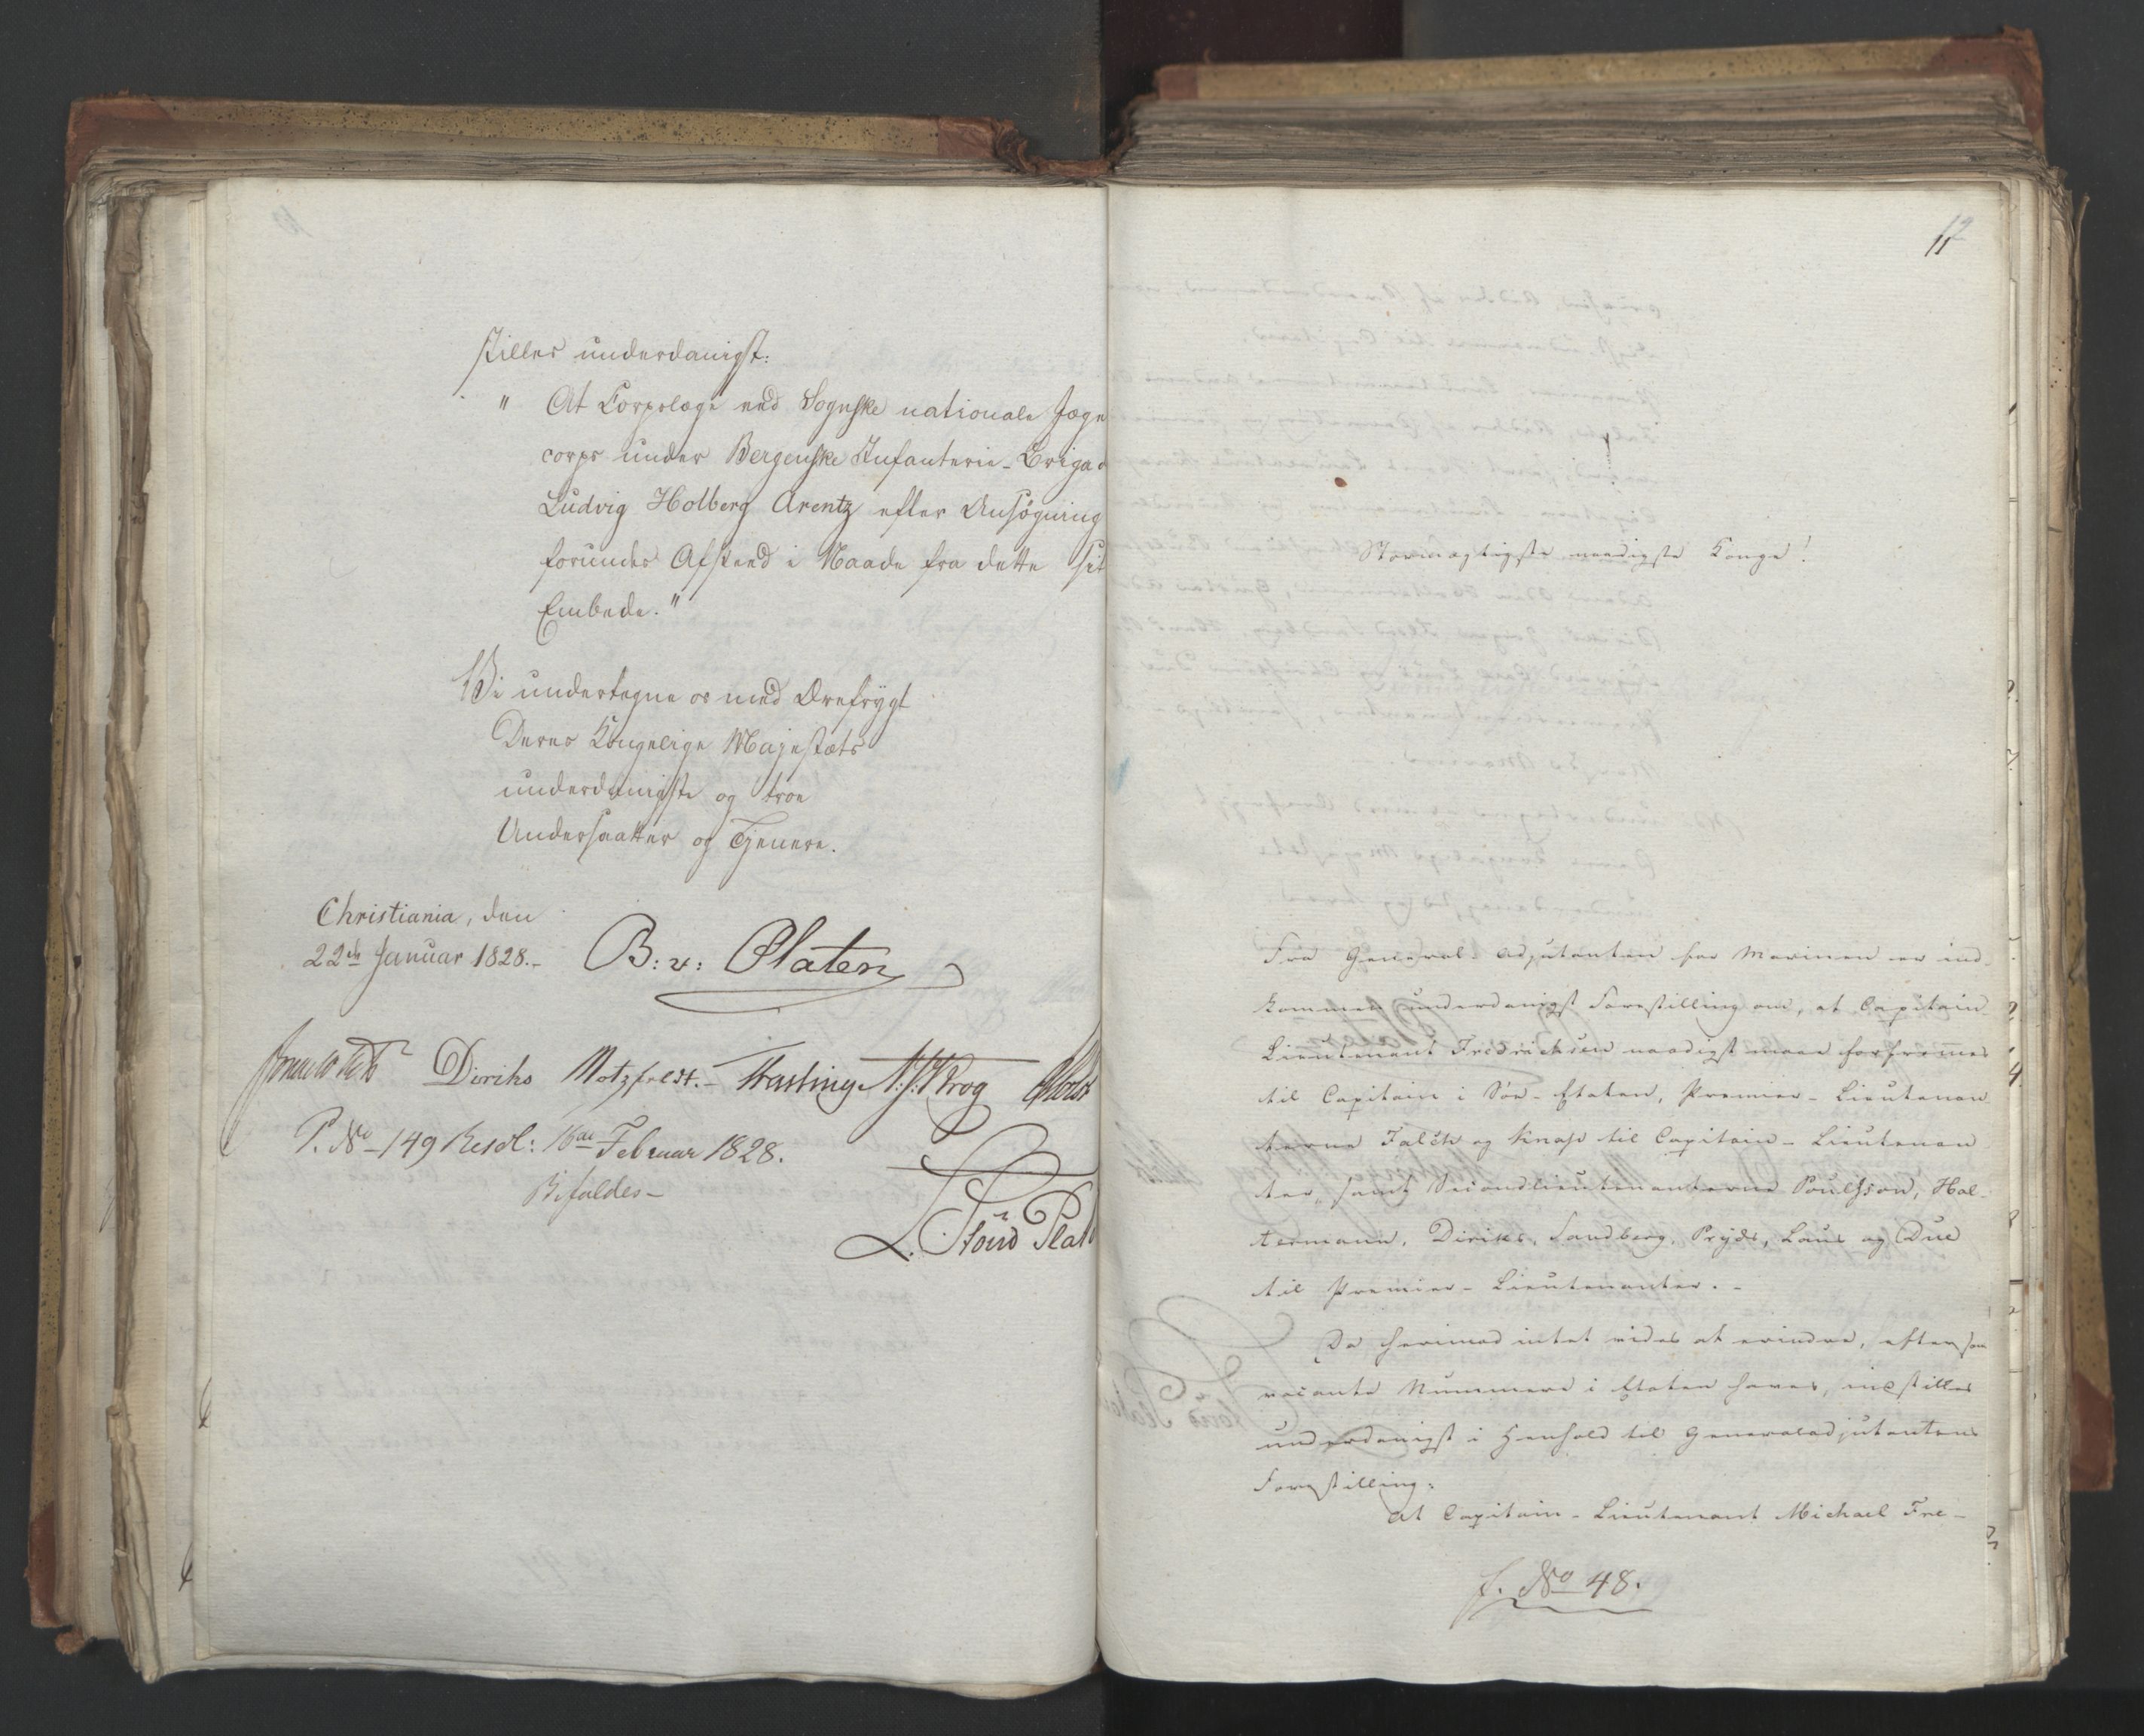 stilles underdanigst:
" At Corpslæge ved Sognske nationale Jæge
corps under Bergenske Infanterie-Brigad
Ludvig Holberg Arentz efter Ansøgning
forundes Afskeed i Naade fra dette sit
Embede."
Vi undertegne os med Ærefrygt
Deres Kongelige Majestæts
underdanigste og troe
Undersaatter og Tjenere.
Christiania, den
22de Januar 1828.-
B: v: Platen
Diriks Motzfeldt.- Krog Holst
P. No 149 Resol: 16de Februar 1828.
Bifaldes-
12
Stormægtigste naadigste Konge!
Fra General-Adjutanten for Marinen er ind-
kommen underdanigst Forestilling om, at Capitain
Lieutenant Fredrichsen naadigst maae forfremmes
til Capitain i Søe-Etaten, Premier-Lieutenan
terne Falck og Knap til Capitain-Lieutenan
ter, samt Secondlieutenanterne Poulsson, Hol-
termann, Diriks, Sandberg, Pryds, Laus og Due
til Premier-Lieutenanter.-
Da herimod intet vides at erindre, eftersom
vacante Nummere i Etaten haves, indstilles
underdanigst i Henhold til Generaladjutantens
Forestilling:
At Capitain-Lieutenant Michael Fre-
f. No 48.